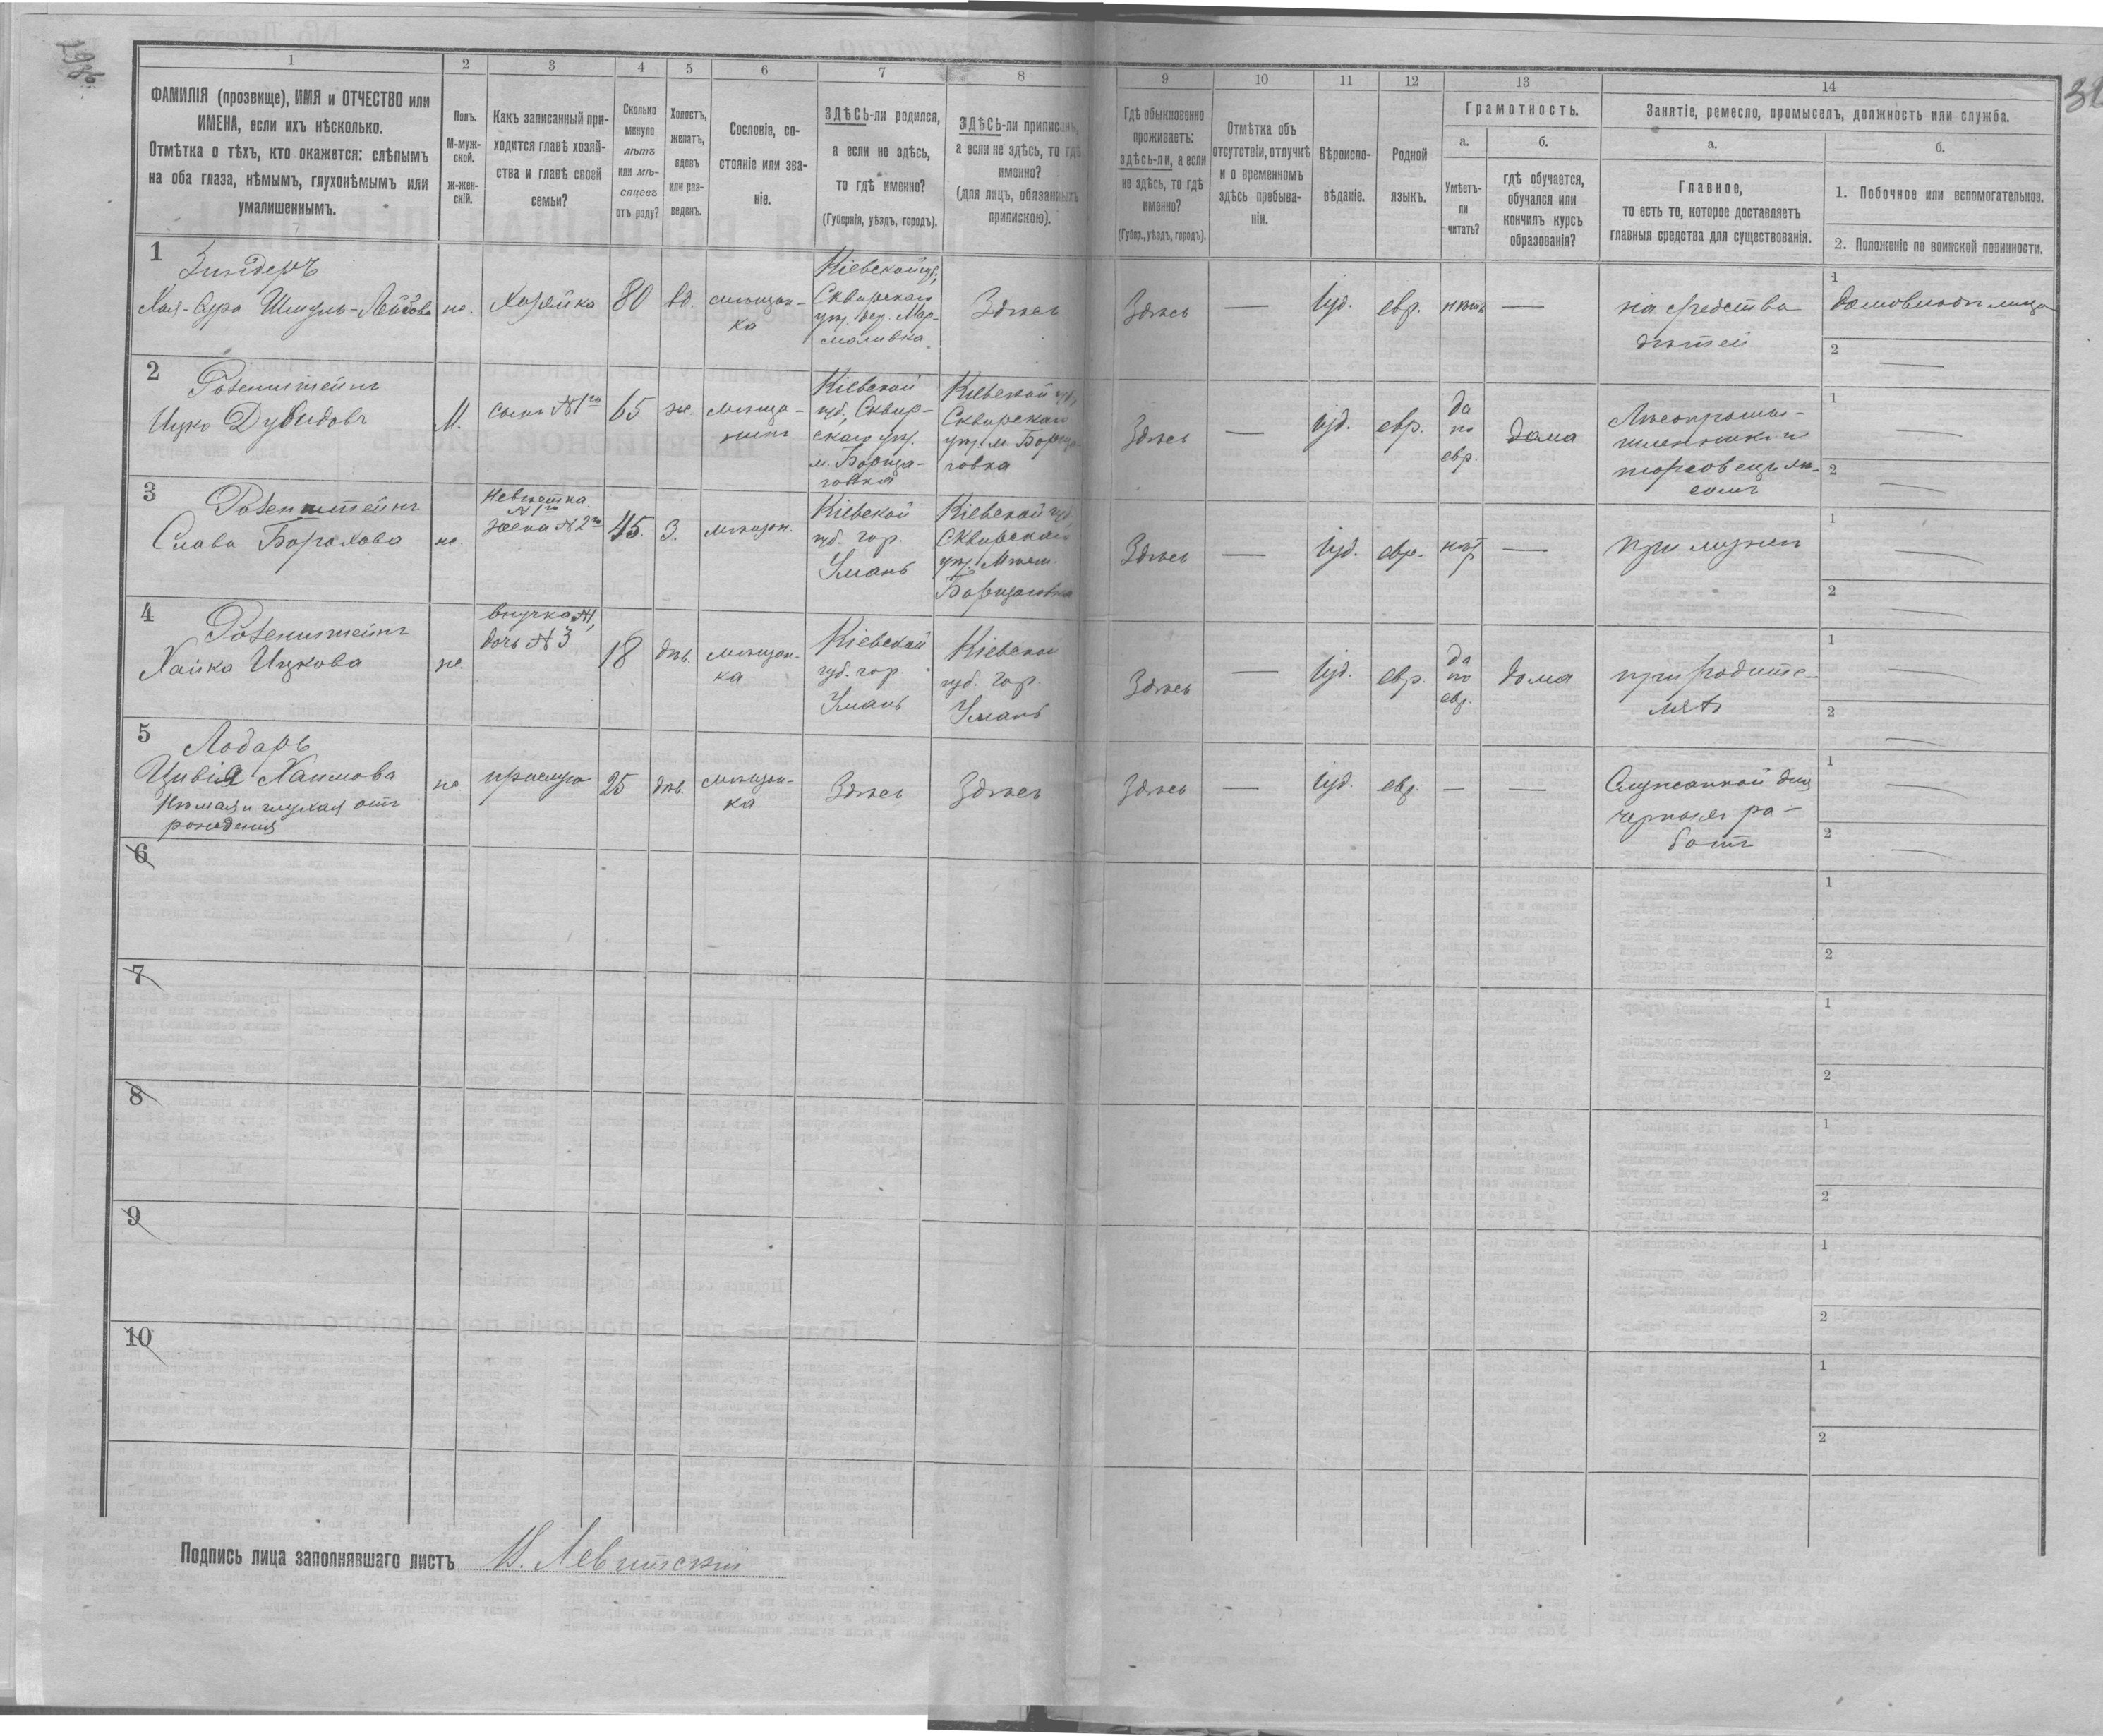 1
2
3
4
5
6
7
8
9
10
11
12
13
14
ФАМИЛІЯ (прозвище), ИМЯ и ОТЧЕСТВО или
ИМЕНА, если ихъ нѣсколько.
Отмѣтка о тѣхъ, кто окажется: слѣпымъ
на оба глаза, нѣмымъ, глухонѣмымъ или
умалишеннымъ.
Полъ.
М-муж-
ской.
ж-жен-
скій.
Какъ записанный при-
ходится главѣ хозяй-
ства и главѣ своей
семьи?
Сколько
минуло
лѣтъ
или мѣ-
сяцевъ
отъ роду?
Холостъ,
женатъ,
вдовъ
или раз-
веденъ.
Сословіе, со-
стояніе или зва-
ніе.
ЗДѢСЬ-ли родился,
а если не здѣсь,
то гдѣ именно?
(Губернія, уѣздъ, городъ).
ЗДѢСЬ-ли приписанъ,
а если не здѣсь, то гдѣ
именно?
(для лицъ, обязанныхъ
припискою).
Гдѣ обыкновенно
проживаетъ:
здѣсь-ли, а если
не здѣсь, то гдѣ
именно?
(Губер., уѣздъ, городъ).
Отмѣтка объ
отсутствіи, отлучкѣ
и о временномъ
здѣсь пребыва-
ніи.
Вѣроиспо-
вѣданіе.
Родной
языкъ.
Грамотность.
а.
Умѣетъ-
ли
читать?
б.
гдѣ обучается,
обучался или
кончилъ курсъ
образованія?
Занятіе, ремесло, промыселъ, должность или служба.
а.
Главное,
то есть то, которое доставляетъ
главныя средства для существованія.
б.
1. Побочное или вспомогательное.
2. Положеніе по воинской повинности.
1
Зиндеръ
Хая-Сура Шмуль-Лейбова
ж.
Хозяйка
80
вд.
мѣщан-
ка
Кіевской губ.,
Сквирскаго
уѣз. дер.
Здѣсь
Здѣсь
—
Іуд.
евр.
нѣтъ
—
на средства
дѣтей
1
2
—
2
Ротенштейнъ
Ицко Дувидовъ
М.
сынъ №1го
65
же.
мѣща-
нинъ
Кіевской
губ., Сквир-
скаго уѣз.
м. Борща-
говка
Кіевской губ,
Сквирскаго
уѣз. м. Борща
говка
Здѣсь
—
Іуд.
евр.
да
по
евр.
дома
Лѣсопромы-
шленникъ и
торговецъ лѣ-
сомъ
1
—
2
—
3
Ротенштейнъ
Слава Борахова
ж.
невѣстка
№1го
жена №2го
45.
З.
мѣщан.
Кіевской
губ. гор.
Умань
Кіевской губ,
Сквирскаго
уѣз. Мѣст.
Борщаговка
Здѣсь
—
Іуд.
евр.
нѣт
—
при мужѣ
1
—
2
—
4
Ротенштейнъ
Хайка Ицкова
же.
внучка №1,
дочь №3
18
дѣв.
мѣщан-
ка
Кіевской
губ. гор.
Умань
Кіевской
губ. гор.
Умань
Здѣсь
—
Іуд.
евр.
да
по
евр.
дома
при родите-
ляхъ
1
—
2
—
5
Лодаръ
Цивія Хаимова
Нѣмая и глухая отъ
рожденія
же
прислуга
25
дѣв.
мѣщан-
ка
Здѣсь
Здѣсь
Здѣсь
—
Іуд.
евр.
—
—
Служанкой для
черныхъ ра-
ботъ
1
—
2
—
6
1
2
7
1
2
8
1
2
9
1
2
10
1
2
Подпись лица заполнявшаго листъ